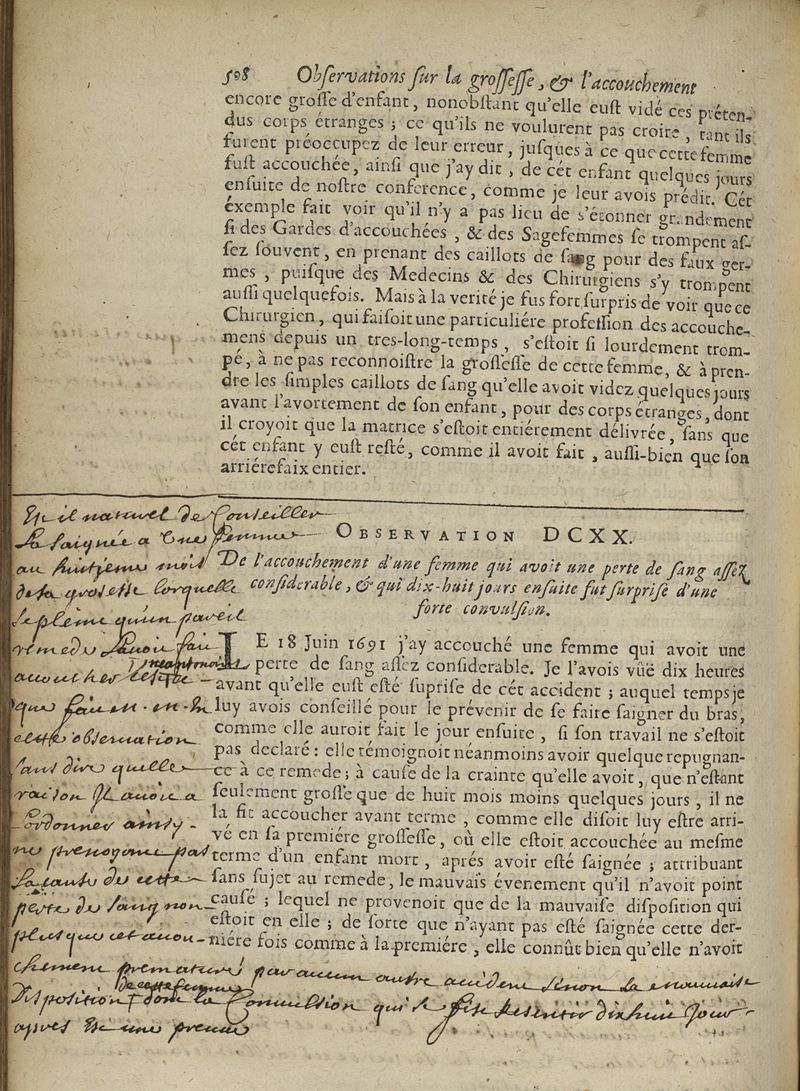 508 Observations sur la grossesse, & l'accouchement
encore grosse d'enfant, nonobstant qu'elle eust vidé ces préten-
dus corps étranges ; ce qu'ils ne voulurent pas croire, tant ils
furent préoccupez de leur erreur, jusques à ce que cette femme
fust accouchée, ainsi que j'ay dit, de cét enfant quelques jours
ensuite de nostre conference, comme je leur avois prédit. Cét
exemple fait voir qu'il n'y a pas lieu de s'étonner grandement
si des Gardes d'accouchées, & des Sagefemmes se trompent as-
sez souvent, en prenant des caillots de sang pour des faux ger-
mes, puisque des Medecins & des Chirurgiens s'y trompent
aussi quelquefois. Mais à la verité je fus fort surpris de voir que ce
Chirurgien, qui faisoit une particuliére profession des accouche-
mens depuis un tres-long-temps, s'estoit si lourdement trom-
pé, à ne pas reconnoistre la grossesse de cette femme, & à pren-
dre les simples caillots de sang qu'elle avoit videz quelques jours
avant l'avortement de son enfant, pour des corps étranges, dont
il croyoit que la matrice s'estoit entiérement délivrée, sans que
cét enfant y eust resté, comme il avoit fait, aussi-bien que son
arrierefaix entier.
OBSERVATION DCXX.
De l'accouchement d'une femme qui avoit une perte de sang assez
considerable, & qui dix-huit jours ensuite fut surprise d'une
forte convulsion.
LE 18 Juin 1691 j'ay accouché une femme qui avoit une
perte de sang assez considerable. Je l'avois vûë dix heures
avant qu'elle eust esté suprise de cét accident ; auquel temps je
luy avois conseillé pour le prévenir de se faire saigner du bras,
comme elle auroit fait le jour ensuite, si son travail ne s'estoit
pas declaré : elle témoignoit néanmoins avoir quelque repugnan-
ce à ce remede ; à cause de la crainte qu'elle avoit, que n'estant
seulement grosse que de huit mois moins quelques jours, il ne
la fit accoucher avant terme, comme elle disoit luy estre arri-
vé en sa premiére grossesse, où elle estoit accouchée au mesme
terme d'un enfant mort, aprés avoir esté saignée ; attribuant
sans sujet au remede, le mauvais évenement qu'il n'avoit point
causé ; lequel ne provenoit que de la mauvaise disposition qui
estoit en elle ; de sorte que n'ayant pas esté saignée cette der-
niére fois comme à la premiére, elle connût bien qu'elle n'avoit
Est il naturel de Conseiller
La saignée a Une femme
au huitieme mois
de sa grossesse lorquelle
se pleint qu'un pareil
remede l'avoit fait
accoucher
que fait
cette observation
sans dire quelle
raison Il avoit
Lordonner ainsy
ne prevoyant pas
La cause de cette
perte de sang non
plus que cet accou-
chement premature par aucun autre accident sinon la mauvaise
disposition de cette femme dont la Convulsion qui se fist sentir dixhuit Jour
apres